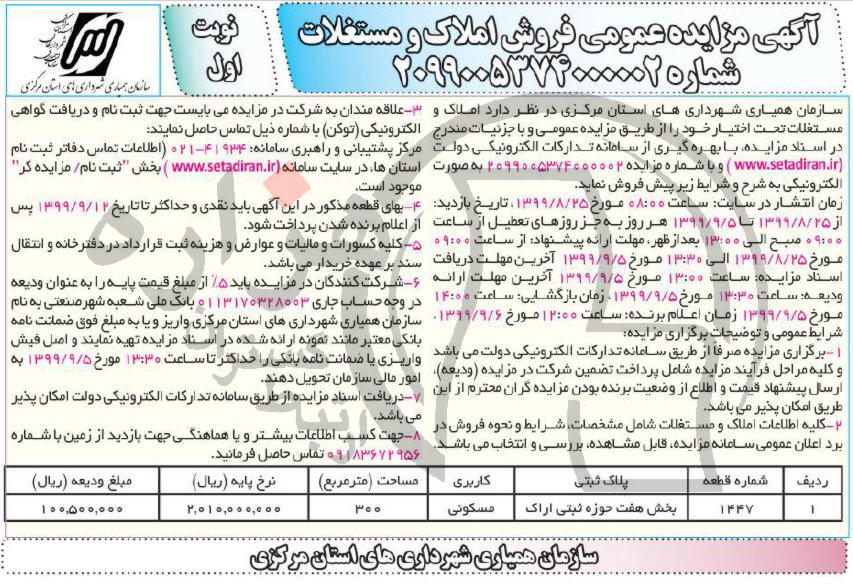 آگهی مزایده عمومی فروش املاک و مستغلات
شماره ۲۰۹۹۰۰۵۳۷۴۰۰۰۰۰۲
نوبت
اول
سازمان همیاری شهرداری های استان مرکزی
سازمان همیاری شهرداری های استان مرکزی در نظر دارد املاک و
مستغلات تحت اختیار خود را از طریق مزایده عمومی و با جزئیات مندرج
در اسناد مزایده، با بهره گیری از سامانه تدارکات الکترونیکی دولت
(www.setadiran.ir) و با شماره مزایده ۲۰۹۹۰۰۵۳۷۴۰۰۰۰۰۲ به صورت
الکترونیکی به شرح و شرایط زیر پیش فروش نماید.
زمان انتشار در سایت: ساعت ۰۸:۰۰ مورخ ۱۳۹۹/۸/۲۵، تاریخ بازدید:
از ۱۳۹۹/۸/۲۵ تا ۱۳۹۹/۹/۵ هر روز به جز روزهای تعطیل از ساعت
۰۹:۰۰ صبح الی ۱۳:۰۰ بعدازظهر، مهلت ارائه پیشنهاد: از ساعت ۰۹:۰۰
مورخ ۱۳۹۹/۸/۲۵ الی ۱۳:۳۰ مورخ ۱۳۹۹/۹/۵ آخرین مهلت دریافت
اسناد مزایده: ساعت ۱۳:۰۰ مورخ ۱۳۹۹/۹/۵ آخرین مهلت ارائه
ودیعه: ساعت ۱۳:۳۰ مورخ ۱۳۹۹/۹/۵، زمان بازگشایی: ساعت ۱۴:۰۰
مورخ ۱۳۹۹/۹/۵ زمان اعلام برنده: ساعت ۱۲:۰۰ مورخ ۱۳۹۹/۹/۶.
شرایط عمومی و توضیحات برگزاری مزایده:
۱-برگزاری مزایده صرفا از طریق سامانه تدارکات الکترونیکی دولت می باشد
و کلیه مراحل فرآیند مزایده شامل پرداخت تضمین شرکت در مزایده (ودیعه)،
ارسال پیشنهاد قیمت و اطلاع از وضعیت برنده بودن مزایده گران محترم از این
طریق امکان پذیر می باشد.
۲-کلیه اطلاعات املاک و مستغلات شامل مشخصات، شرایط و نحوه فروش در
برد اعلان عمومی سامانه مزایده، قابل مشاهده، بررسی و انتخاب می باشد.
۳-علاقه مندان به شرکت در مزایده می بایست جهت ثبت نام و دریافت گواهی
الکترونیکی (توکن) با شماره ذیل تماس حاصل نمایند:
مرکز پشتیبانی و راهبری سامانه: ۴۱۹۳۴-۰۲۱ (اطلاعات تماس دفاتر ثبت نام
استان ها، در سایت سامانه (www.setadiran.ir) بخش "ثبت نام/ مزایده گر"
موجود است.
۴-بهای قطعه مذکور در این آگهی باید نقدی و حداکثر تا تاریخ ۱۳۹۹/۹/۱۲ پس
از اعلام برنده شدن پرداخت شود.
۵-کلیه کسورات و مالیات و عوارض و هزینه ثبت قرارداد در دفترخانه و انتقال
سند بر عهده خریدار می باشد.
۶-شرکت کنندگان در مزایده باید ۵٪ از مبلغ قیمت پایه را به عنوان ودیعه
در وجه حساب جاری ۰۱۱۳۱۷۰۳۲۸۰۰۳ بانک ملی شعبه شهرصنعتی به نام
سازمان همیاری شهرداری های استان مرکزی واریز و یا به مبلغ فوق ضمانت نامه
بانکی معتبر مانند نمونه ارائه شده در اسناد مزایده تهیه نمایند و اصل فیش
واریزی یا ضمانت نامه بانکی را حداکثر تا ساعت ۱۳:۳۰ مورخ ۱۳۹۹/۹/۵ به
امور مالی سازمان تحویل دهند.
۷-دریافت اسناد مزایده از طریق سامانه تدارکات الکترونیکی دولت امکان پذیر
می باشد.
۸-جهت کسب اطلاعات بیشتر و یا هماهنگی جهت بازدید از زمین با شماره
۰۹۱۸۳۶۷۲۹۵۶ تماس حاصل فرمائید.
ردیف شماره قطعه پلاک ثبتی کاربری مساحت (مترمربع) نرخ پایه (ریال) مبلغ ودیعه (ریال)
۱ ۱۴۴۷ بخش هفت حوزه ثبتی اراک مسکونی ۳۰۰ ۲,۰۱۰,۰۰۰,۰۰۰ ۱۰۰,۵۰۰,۰۰۰
سازمان همیاری شهرداری های استان مرکزی